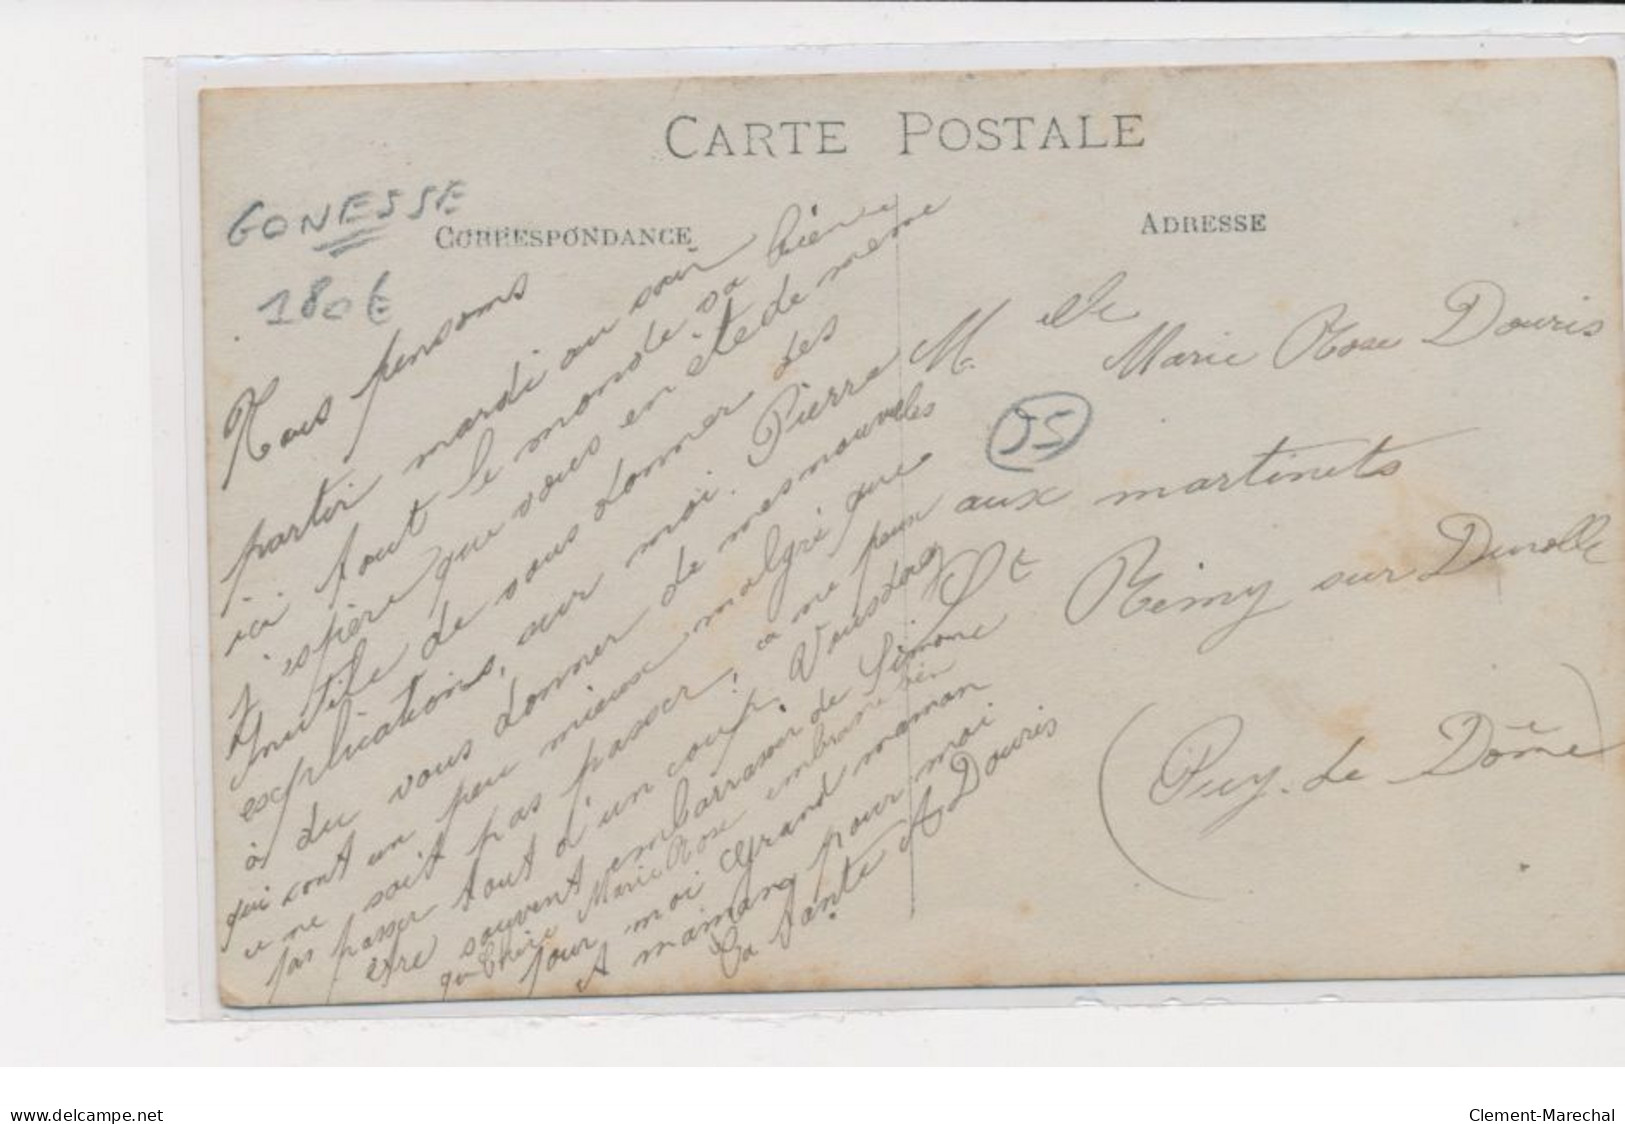 CARTE POSTALE
GONESSE
CORRESPONDANCE
ADRESSE
180€
Nous pensons
partir mardi au soir
ici tout le monde va bien
j'espère que vous en ête de meme
Inutile de vous donner des
explications, sur moi. Pierre
à du vous donner de mes nouvelles
qui sont un peu mieux malgré que
ce ne soit pas passer, ça ne peux
pas passer tout d'un coup. Vous
être souvent embarrasser de Simone
Marie Rose embrasse bien
pour moi Grand maman
et maman pour moi
Ta tante A Douris
Melle Marie Rose Douris
95
aux martinets
St Rémy sur Durolle
(Puy-de Dôme)
www.delcampe.net
Clement-Marechal